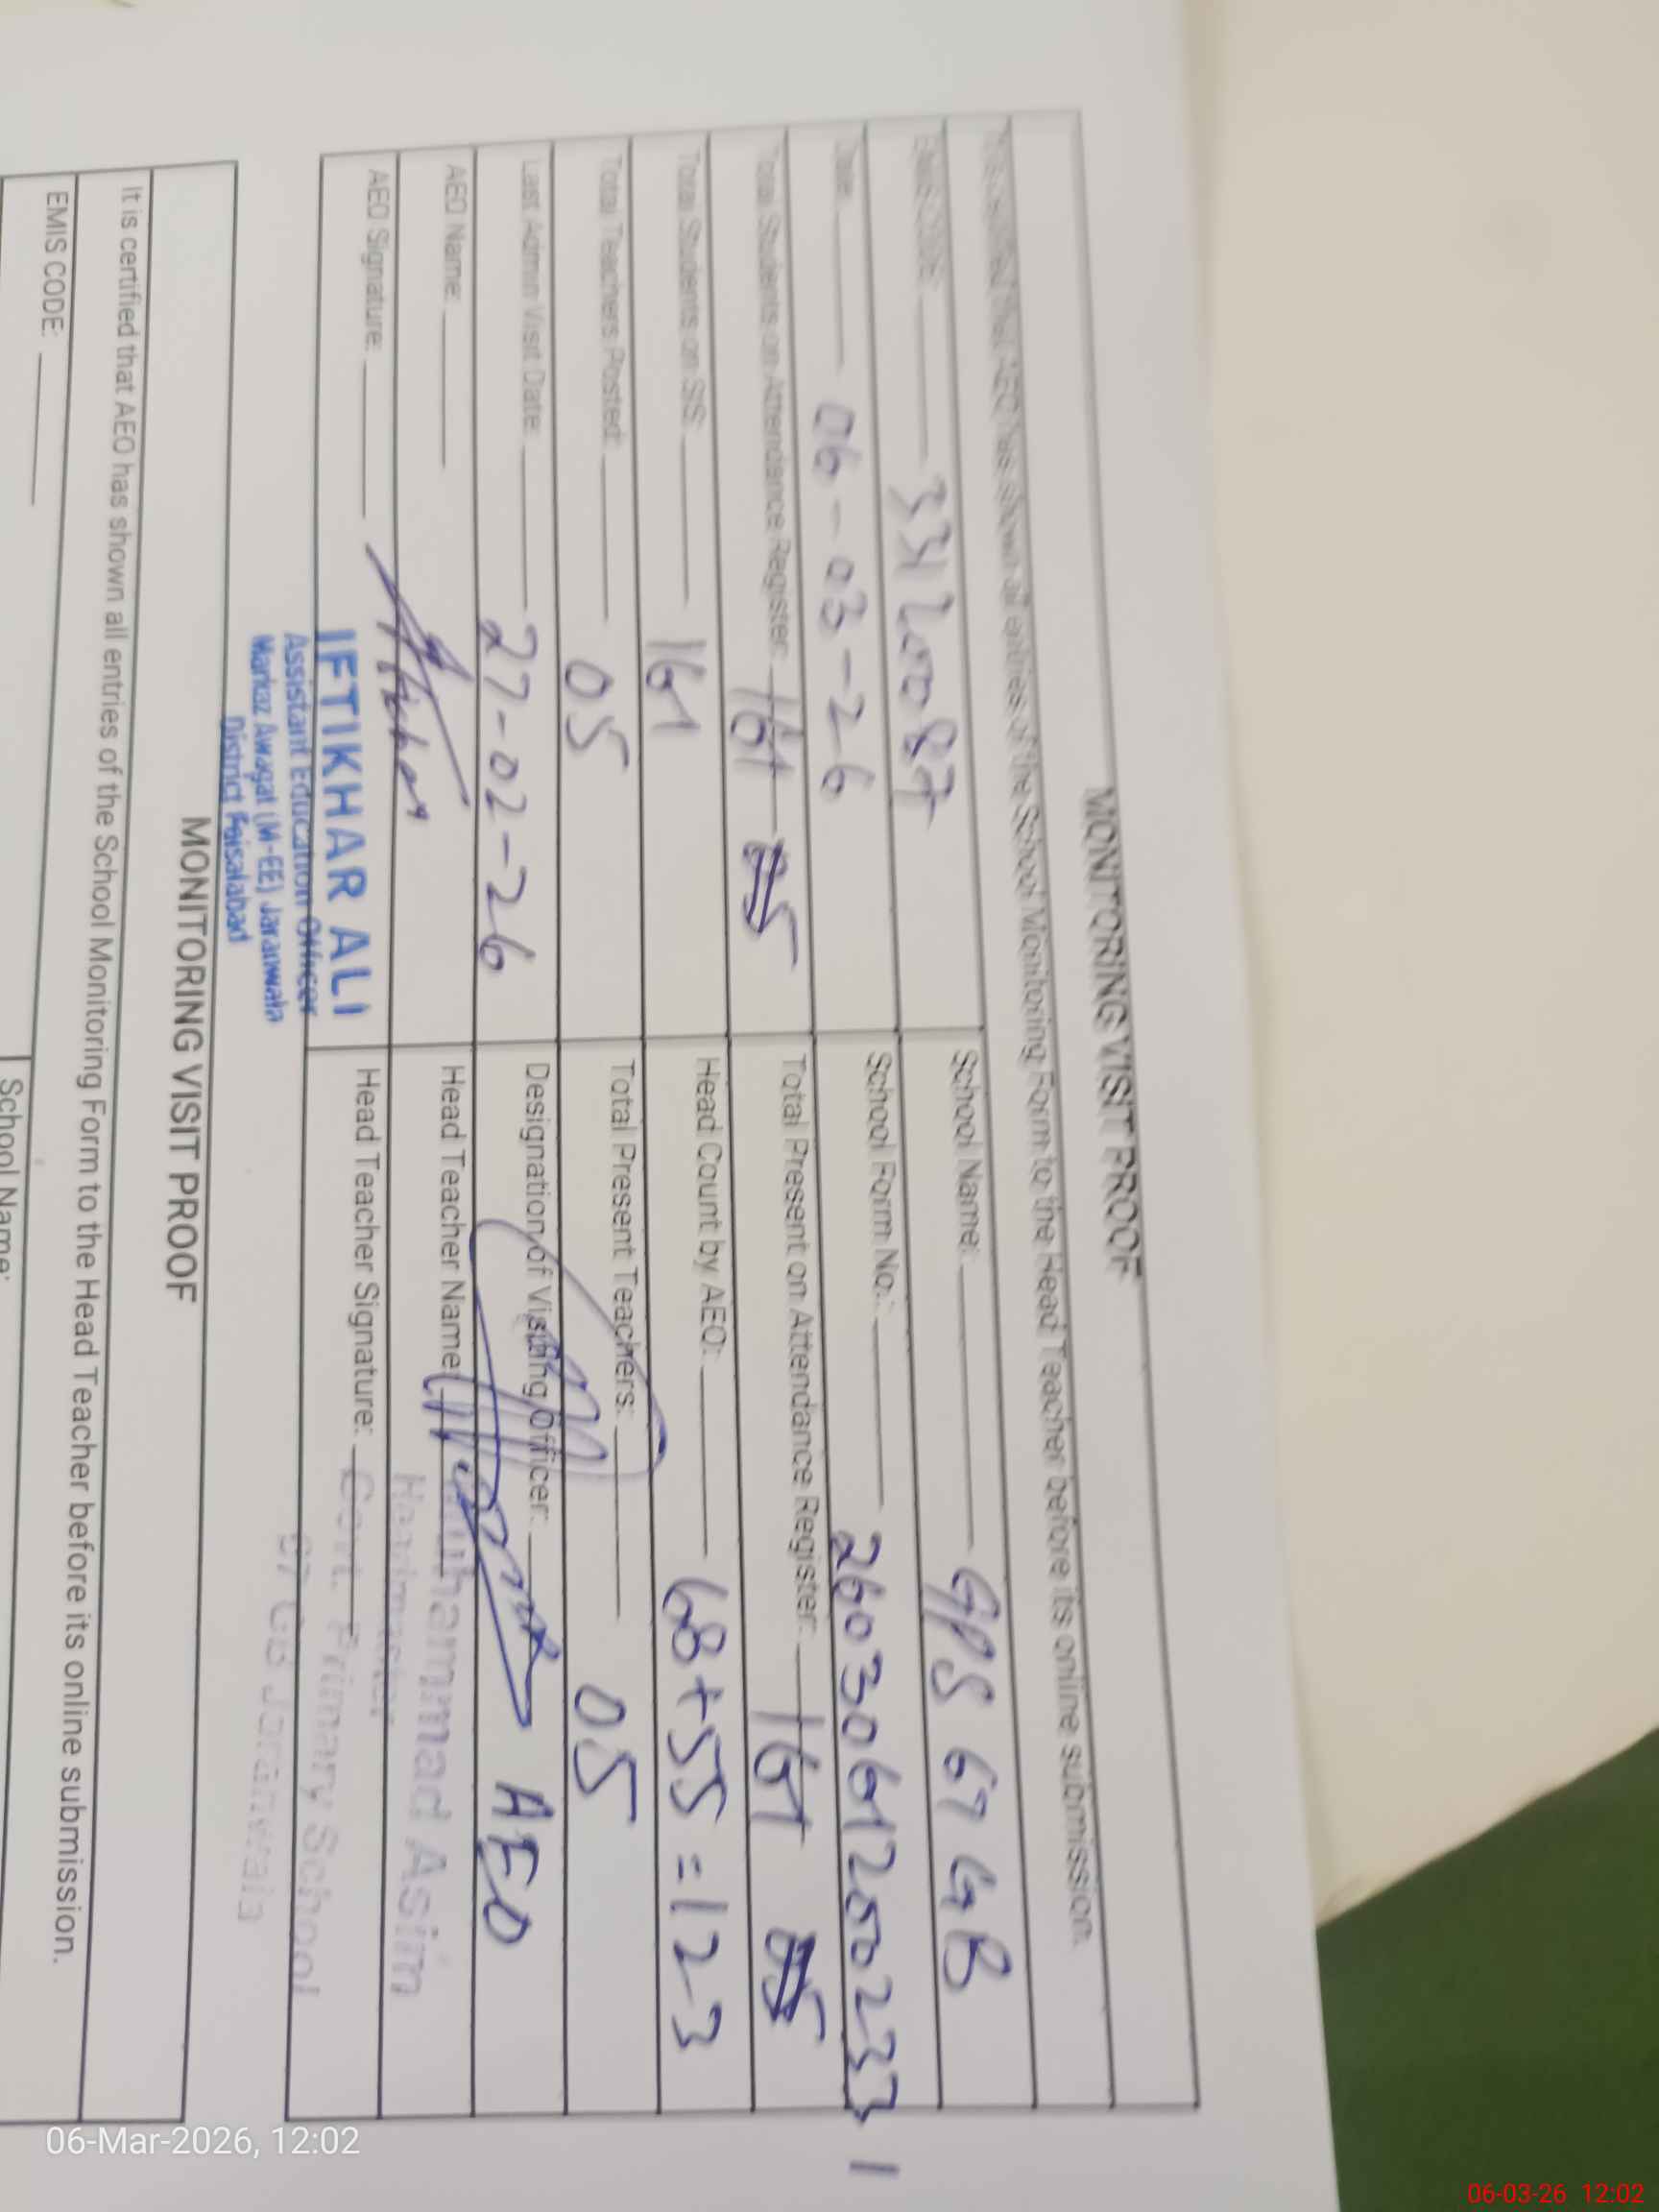 MONITORING VISIT PROOF
This certified that AEO has shown all entries of the School Monitoring Form to the Head Teacher before its online submission.
EMIS CODE: 33120087
School Name: GPS 67 GB
Date: 06-03-26
School Form No.: 26030612002331
Total Students on Attendance Register: 161
Total Present on Attendance Register: 161
Total Students on SIS: 161
Head Count by AEO: 68+55=123
Total Teachers Posted: 05
Total Present Teachers: 05
Last Admin Visit Date: 27-02-26
Designation of Visiting Officer: AEO
AEO Name:
Head Teacher Name: Muhammad Asim
AEO Signature:
Head Teacher Signature:
IFTIKHAR ALI
Assistant Education Officer
Markaz Awagat (M-EE) Jaranwala
District Faisalabad
Govt. Primary School
67 GB Jaranwala
MONITORING VISIT PROOF
It is certified that AEO has shown all entries of the School Monitoring Form to the Head Teacher before its online submission.
EMIS CODE:
School Name:
06-Mar-2026, 12:02
06-03-26 12:02